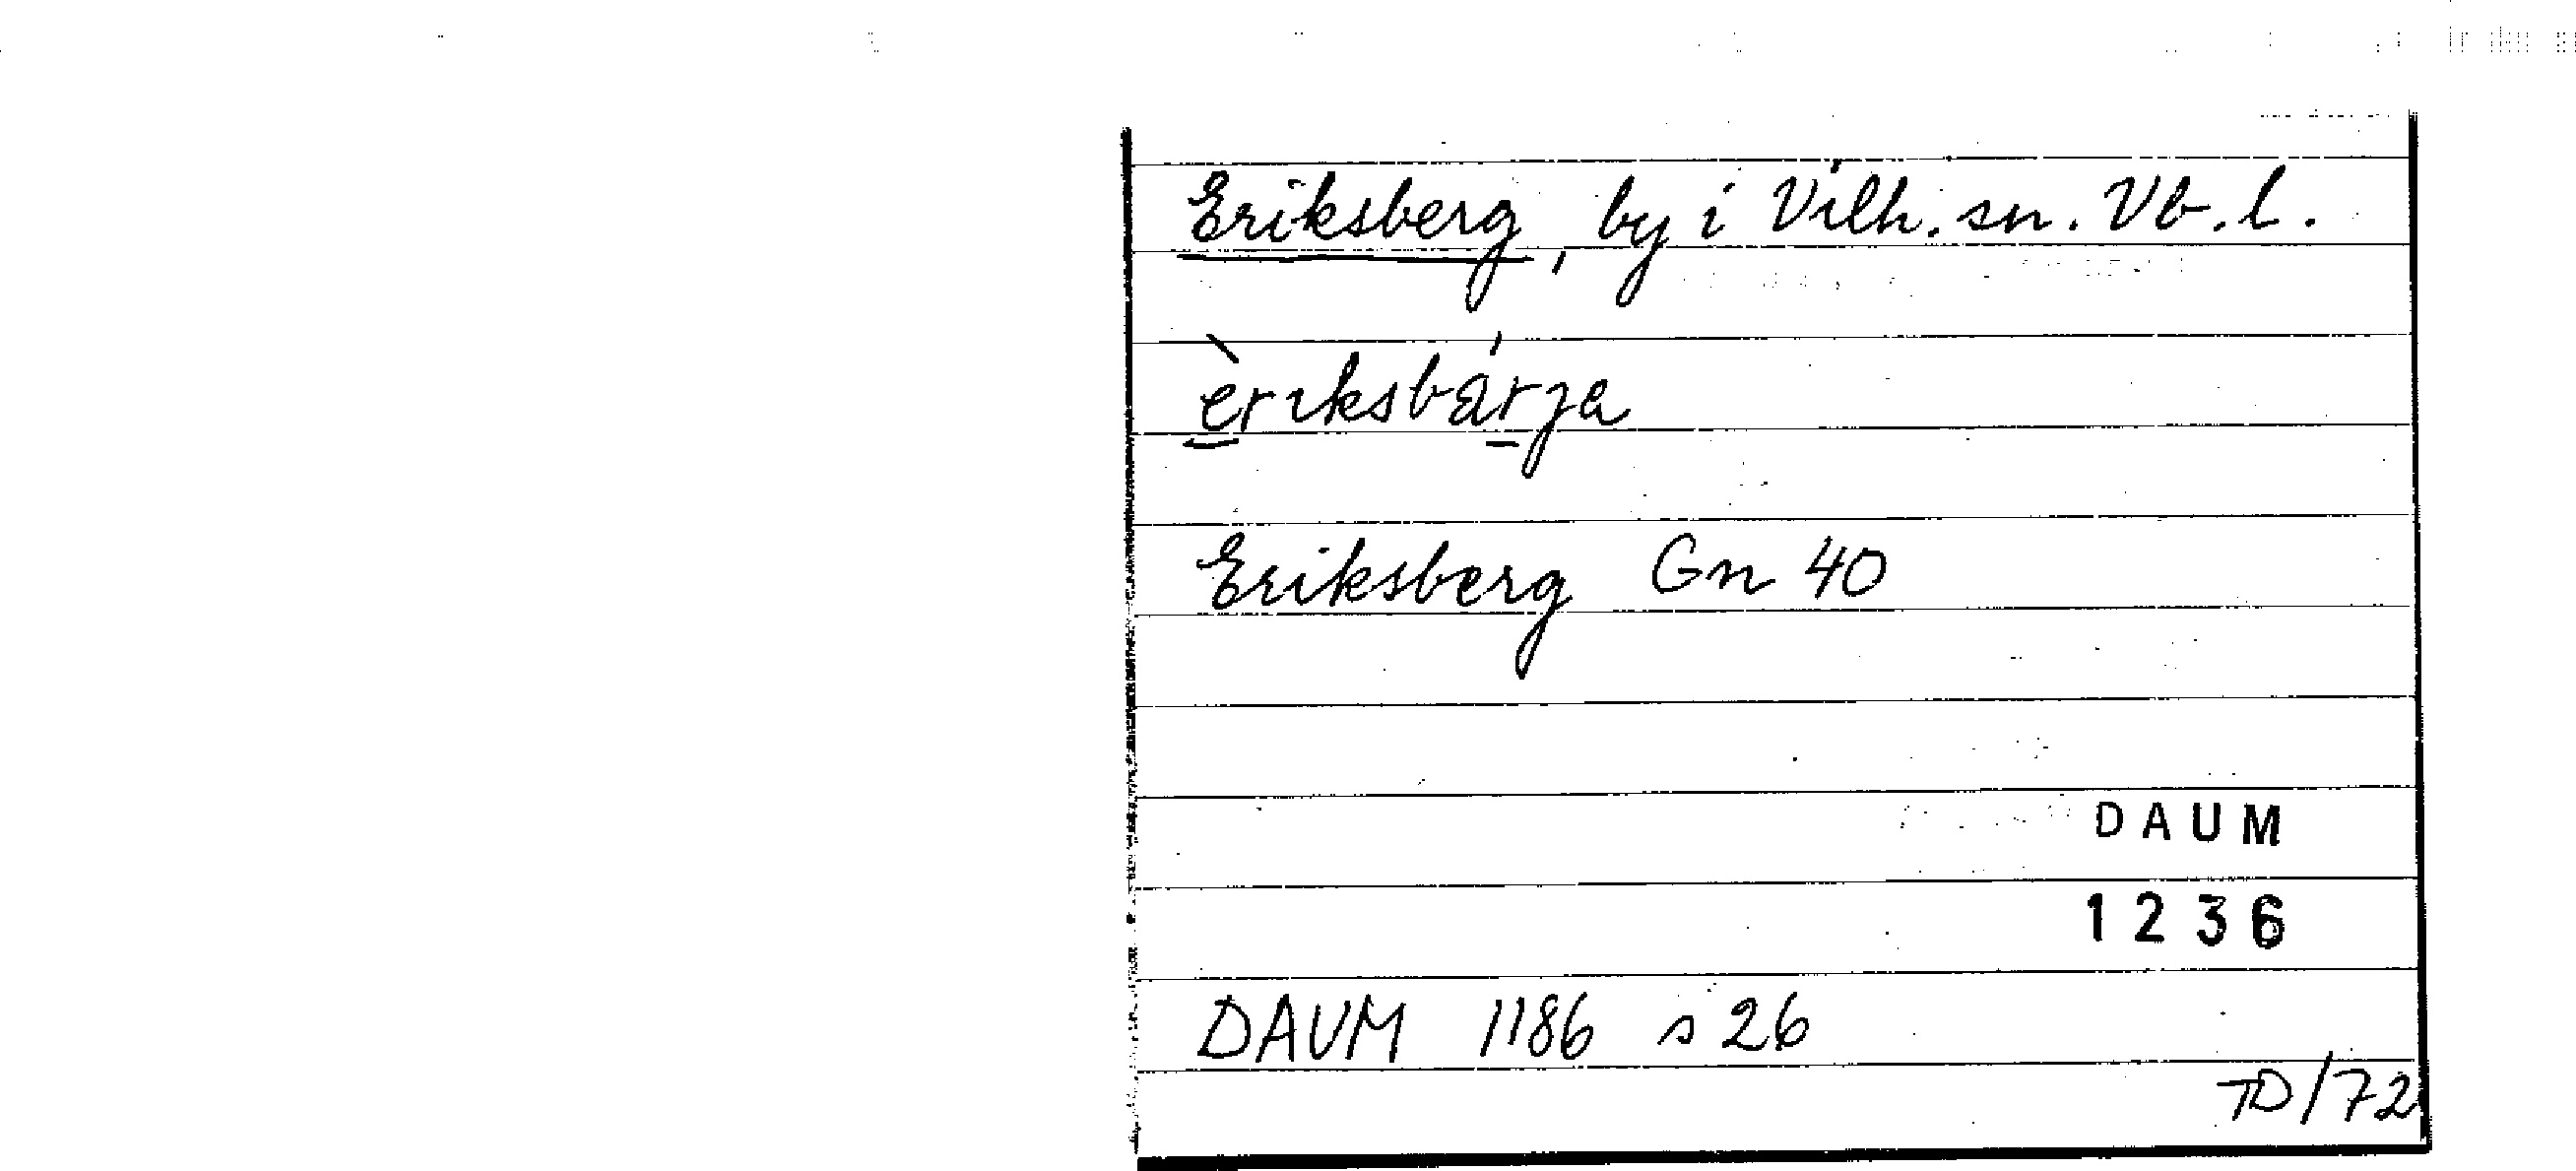 Eriksberg, by i Vilh. sn. Vb. l.
è̲rıksbár̲ja
Eriksberg Gn 40
DAUM
1236
DAUM 1186 s 26
TD/72